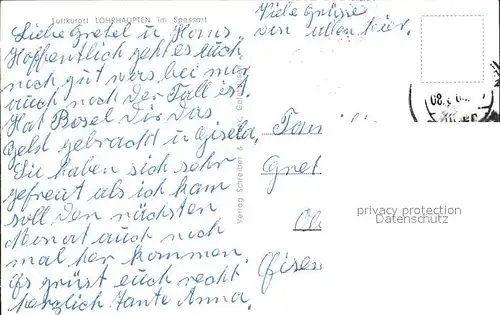 Luftkurort LOHRHAUPTEN im Spessart
Liebe Gretel u Hans
Hoffentlich geht es euch
noch gut was bei mir
auch noch der Fall ist.
Hat Rosel Dir das
Geld gebracht u Gisela,
Sie haben sich sehr
gefreut als ich kam
soll den nächsten
Monat auch noch
mal her kommen.
Es grüst euch recht
herzlich Tante Anna,
Viele Grüsse
von allen hier.
Verlag Schreiber &
Fam
Gret
Ob
Eisen
privacy protection
Datenschutz